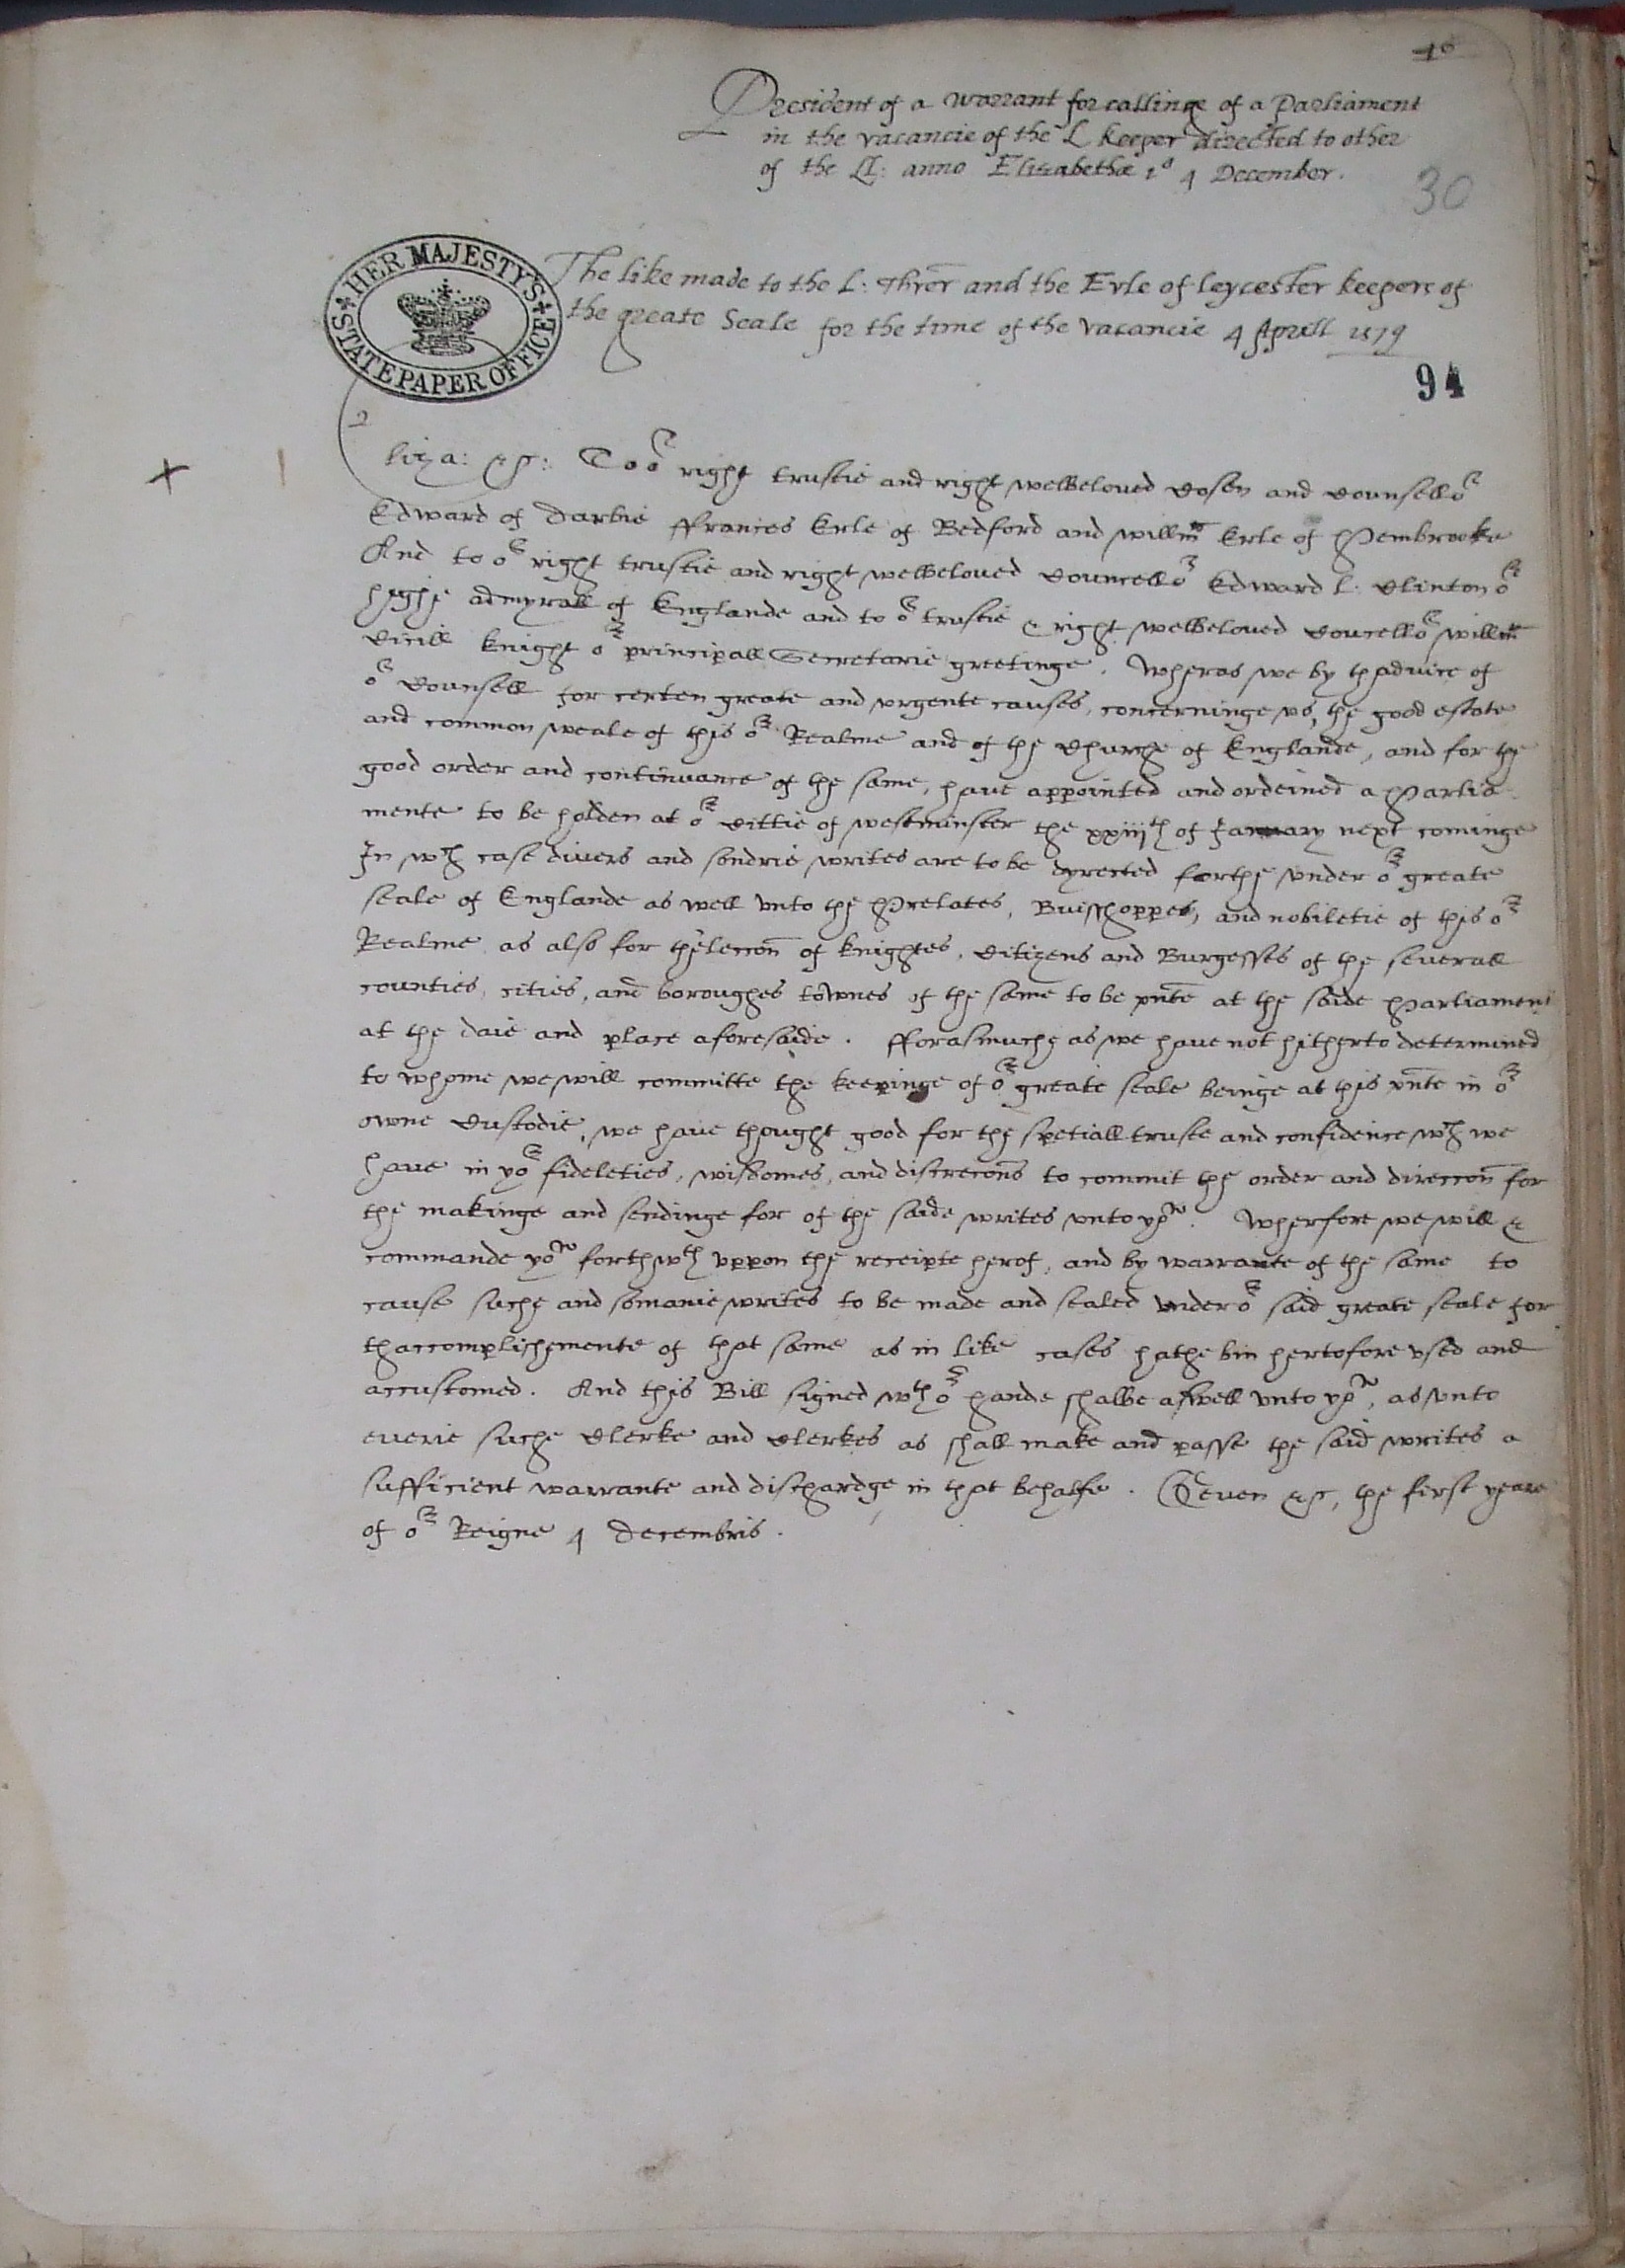 40
President of a warrant for callinge of a Parliament
in the vacancie of the L keeper directed to other
of the LL: anno Elizabethæ 1º 4 December.
30
HER MAJESTY'S
STATE PAPER OFFICE
The like made to the L: Threr and the Erle of leycester keepers of
the greate Seale for the time of the vacancie 4 Aprill 1579
94
Eliza: &c: To oʳ right trustie and right welbeloved Cosen and Counselloʳ
Edward of Darbie ffrances Erle of Bedford and willm Erle of Pembrooke
And to oʳ right trustie and right welbeloued Councelloʳ Edward l. Clinton oʳ
highe admyrall of Englande and to oʳ trustie & right welbeloued Coucelloʳ willm
Cicill knight oʳ principall Secretarie greetinge. Wheras we by thadvice of
oʳ Counsell for certen greate and vrgente causes, concerninge vs, the good estate
and common weale of this oʳ Realme and of the Churche of Englande, and for the
good order and continuance of the same, haue appointed and ordeined a Parlia
mente to be holden at oʳ Cittie of westminster the xxiijᵗʰ of January next cominge
In wᶜʰ case divers and sondrie writes are to be dyrected forthe vnder oʳ greate
seale of Englande as well vnto the Prelates, Buisshoppes, and nobiletie of this oʳ
Realme as also for thelecon of knightes, Citizens and Burgesses of the seuerall
counties, cities, and boroughes townes of the same to be pnte at the saide Parliament
at the daie and place aforesaide. fforasmuche as we haue not hitherto determined
to whome we will committe the keepinge of oʳ greate seale beinge at this pnte in oʳ
owne Custodie, we haue thought good for the spetiall truste and confidence wᶜʰ we
haue in yoʳ fideleties, wisdomes, and discrecons to commit the order and direccon for
the makinge and sendinge for of the saide writes vnto yoᵘ. Wherfore we will &
commande yoᵘ forthwᵗʰ vppon the receipte herof, and by warrante of the same to
cause suche and somanie writes to be made and sealed vnder oʳ said greate seale for
thaccomplishemente of that same as in like cases hathe bin hertofore vsed and
accustomed. And this Bill signed wᵗʰ oʳ hande shalbe aswell vnto yoᵘ, as vnto
euerie suche Clerke and Clerkes as shall make and passe the said writes a
sufficient warrante and dischardge in that behalfe. Geuen &c, the first yeare
of oʳ Reigne 4 Decembris.